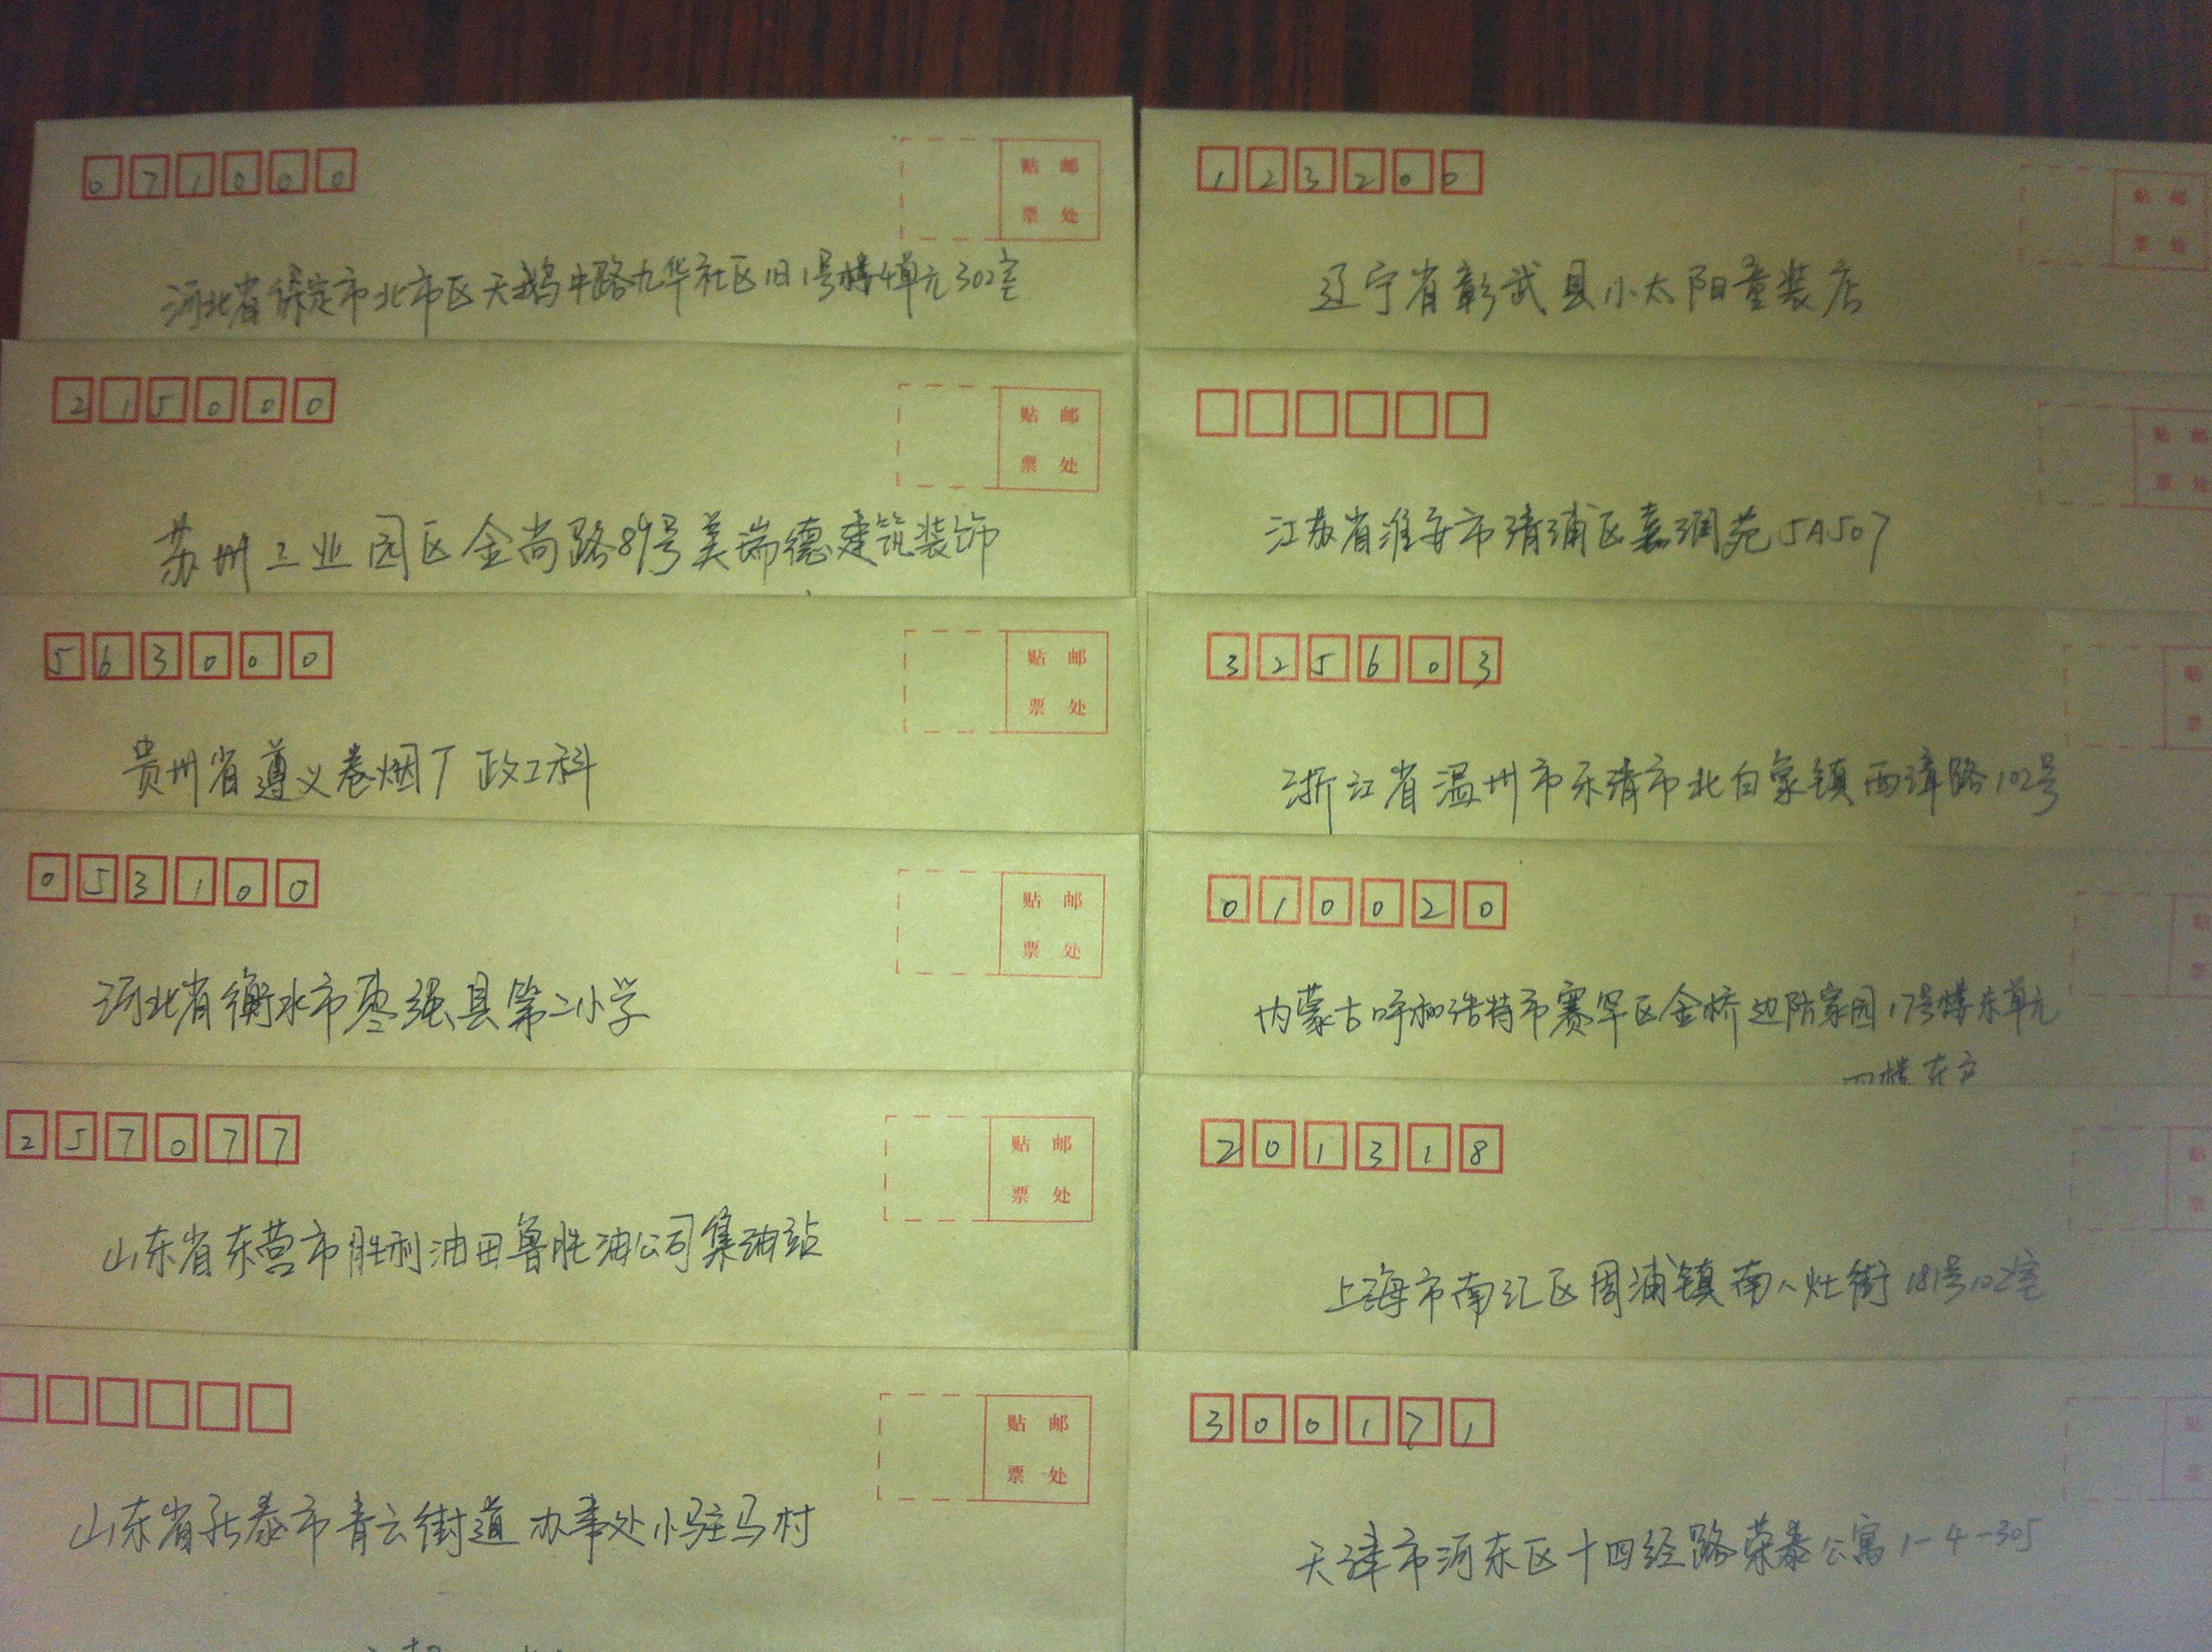 071000
贴 邮
票 处
河北省保定市北市区天鹅中路九华社区旧1号楼4单元302室
215000
贴 邮
票 处
苏州工业园区金尚路89号美瑞德建筑装饰
563000
贴 邮
票 处
贵州省遵义卷烟厂政工科
053100
贴 邮
票 处
河北省衡水市枣强县第二小学
257077
贴 邮
票 处
山东省东营市胜利油田鲁胜油公司集油站
贴 邮
票 处
山东省新泰市青云街道办事处小驻马村
123200
贴 邮
票 处
辽宁省彰武县小太阳童装店
贴 邮
票 处
江苏省淮安市清浦区嘉润苑5A507
325603
贴
票
浙江省温州市乐清市北白象镇西漳路102号
010020
贴
票
内蒙古呼和浩特市赛罕区金桥边防家园17号楼东单元
四楼东户
201318
贴
票
上海市南汇区周浦镇南八灶街181号102室
300171
贴
票
天津市河东区十四经路荣泰公寓1-4-305